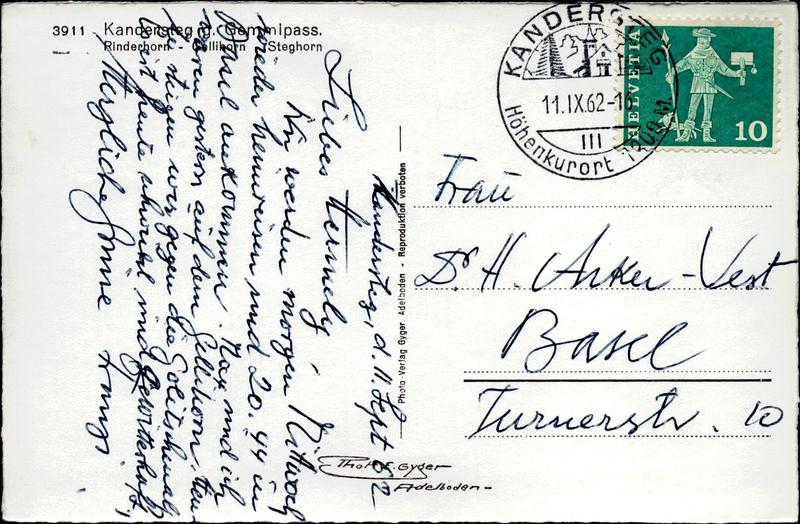 3911 Kandersteg g. Gemmipass.
Rinderhorn - Gellihorn Steghorn
Kandersteg, d. 11. Sept. 62
Liebes Hermely,
Wir werden morgen Mittwoch
wieder heimreisen und 20.44 in
Basel ankommen. Max und ich
waren gestern auf dem Gellihorn, heute
stiegen wir gegen die
ist heute schwül und gewitterhaft,
Herzliche Grüsse
Photo-Verlag Gyger, Adelboden - Reproduktion verboten
PHOTO E. GYGER
Adelboden-
KANDERSTEG
11.IX.62-16
III
Höhenkurort 1200 M.
HELVETIA
10
Frau
Dr. H. Anker-Vest
Basel
Turnerstr. 10